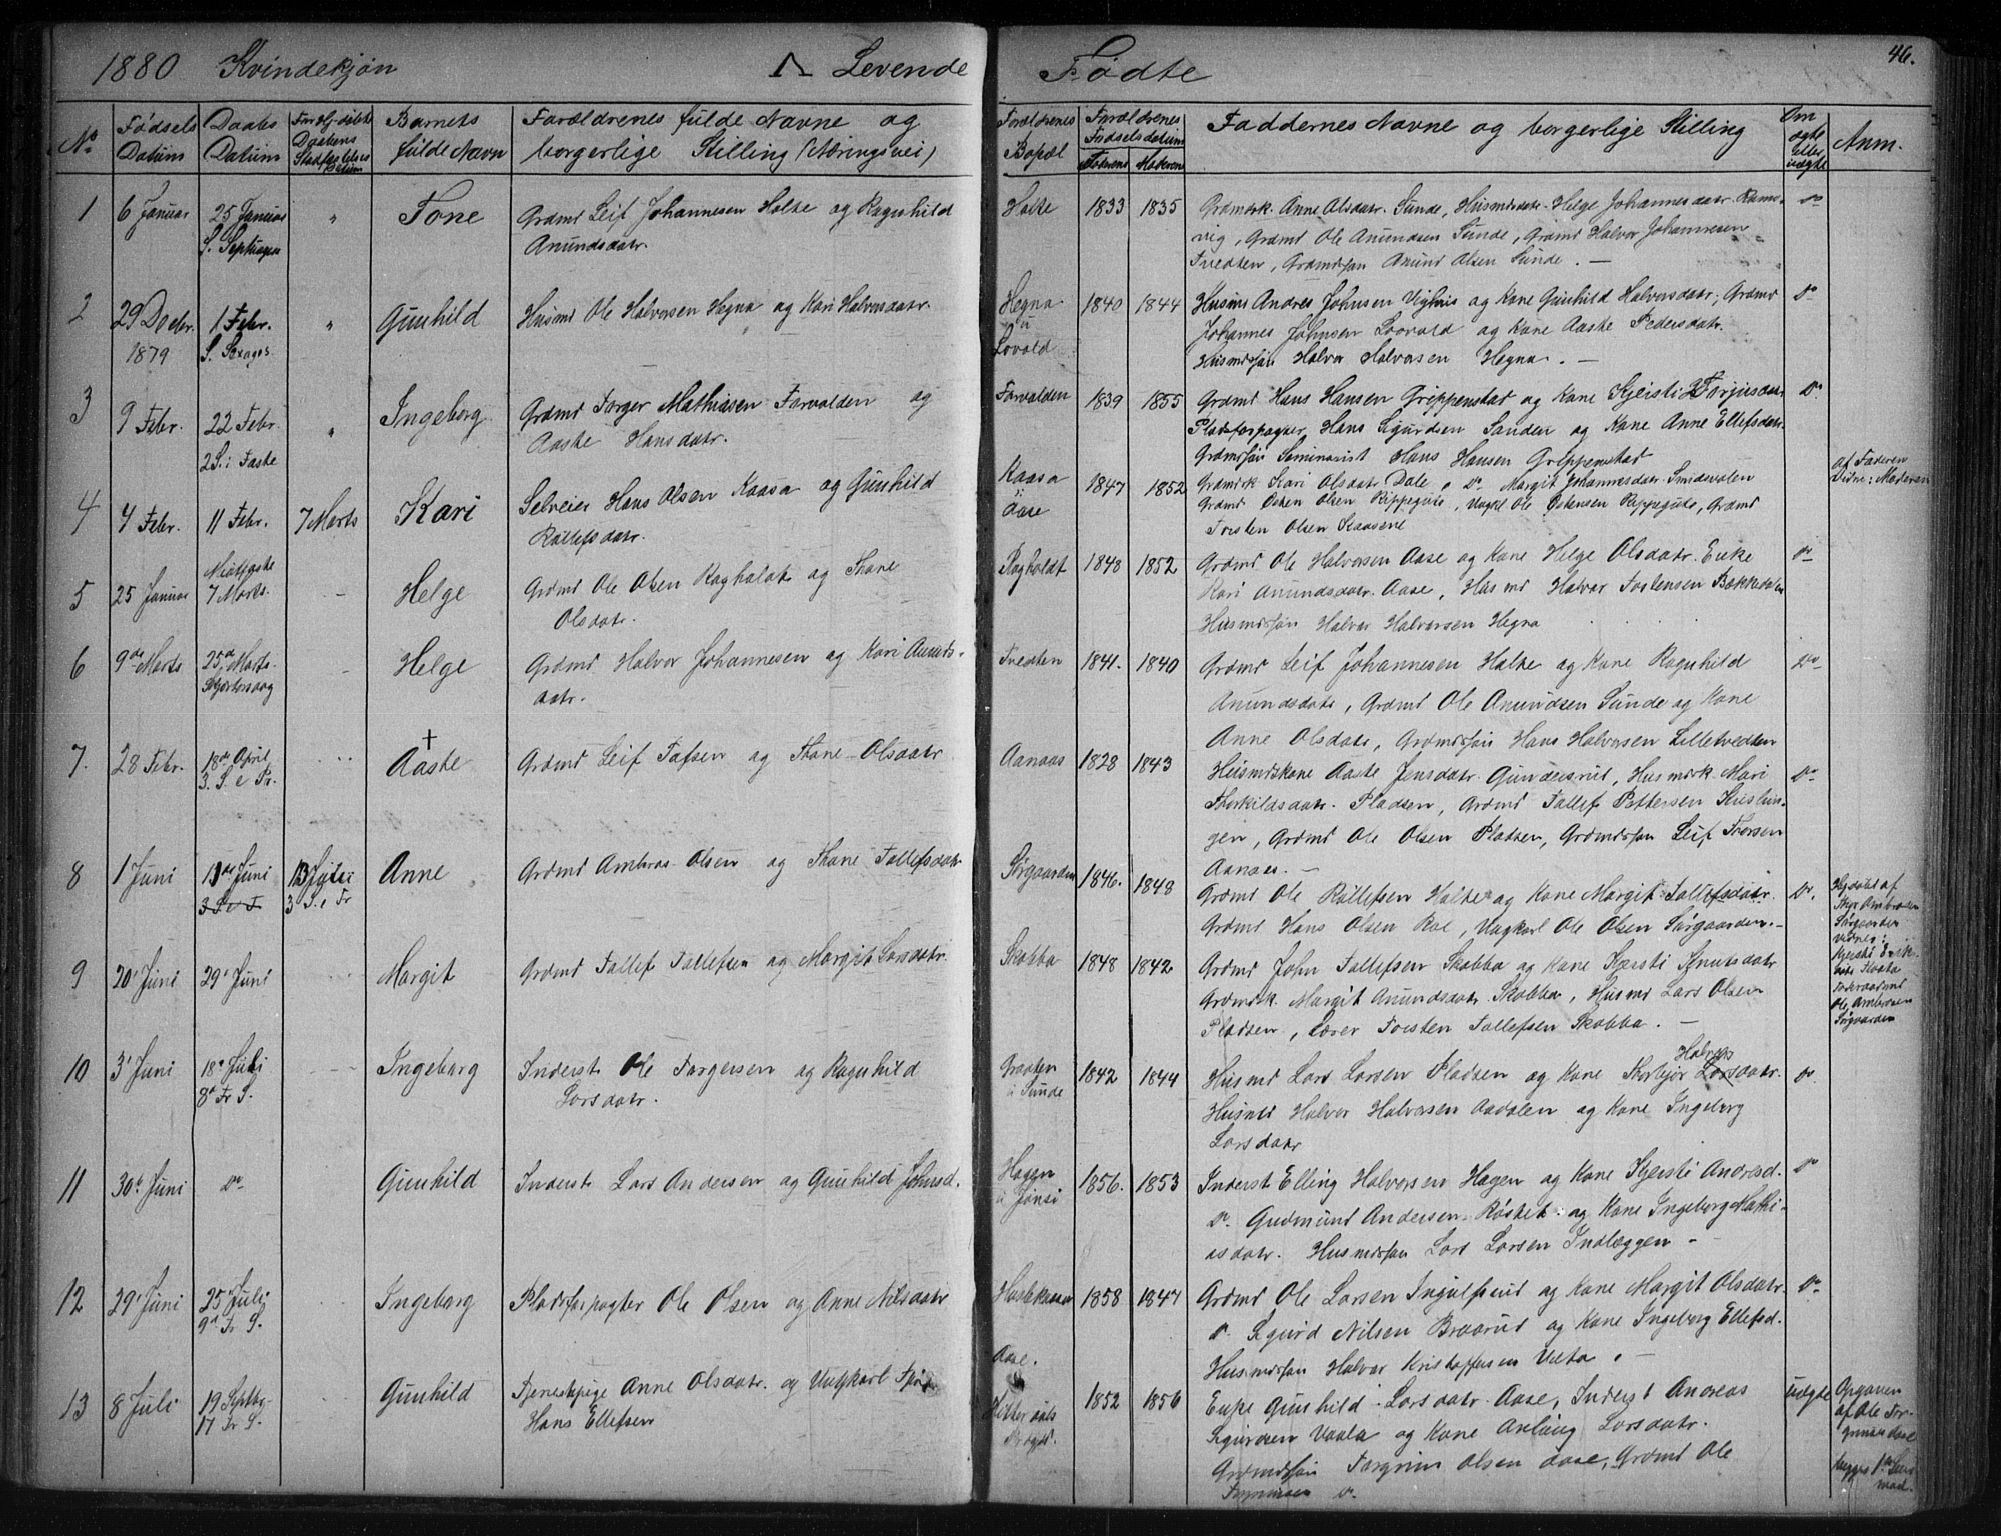 1880 Kvindekjøn Levende Fødte 46.
No
Fødsels Datum
Daabs Datum
Daabens
Barnets fulde Navn
Forældrenes fulde Navne og
borgerlige Stilling (Næringsvei)
Forældrenes Bopæl
Forældrenes Fødselsdatum
Faderens Moderens
Faddernes Navne og borgerlige Stilling
Om ægte eller uægte
Anm.
1 6 Januar 25 Januar S. Septuages " Tone
Grdmd Leif Johannesen Holte og Ragnhild
Anundsdatr.
Holte 1833 1835
Grdmdsk. Anne Olsdatr. Sunde, Husmdsdatr. Helge Johannesdatr. Ramsvig, Grdmd Ole Anundsen Sunde, Grdmd Halvor Johannesen
Tvedten, Grdmdsøn Anund Olsen Sunde. — Do
2 29 Decbr. 1879 1 Febr. S. Sexages. " Gunhild
Husmd Ole Halvorsen Hegna og Kari Halvorsdatr.
Hegna u Lovald 1840 1844
Husmd Andres Johnsen Vighus og Kone Gunhild Halvorsdatr., Grdmd
Johannes Johnsen Loovald og Kone Aaste Pedersdatr.
Husmdsøn Halvor Halvorsen Hegna. — Do
3 9 Febr. 22 Febr. 2 S. i Faste " Ingeborg
Grdmd Torger Mathiasen Forvalden og
Aaste Hansdatr.
Forvalden 1839 1855
Grdmd Hans Hansen Grippenstad og Kone Kjersti
Pladsforpagter Hans Sigurdsen Sanden og Kone Anne Ellefsdatr.
Grdmdsøn Seminarist Hans Hansen Grippenstad Do
4 4 Febr. 11 Febr. 7 Marts Kari
Selveier Hans Olsen Kaasa og Gunhild
Rollefsdatr.
Kaasa i Aase 1847 1852
Grdmdsk Kari Olsdatr Dale, Do. Margit Johannesdatr.
Grdmd Østen Olsen Rippegute, Ungkl Ole Østensen Rippegute, Grdmd
Torsten Olsen Kaasene
Af Faderen
Vidne: Moderen
5 25 Januar 7 Marts. — Helge
Grdmd Ole Olsen Ragholdt og Thone
Olsdatr.
Ragholdt 1848 1852
Grdmd Ole Halvorsen Aase og Kone Helge Olsdatr. Enke
Kari Anundsdatr. Aase, Husmd Halvor Torstensen Bækkedalen
Husmdsøn Halvor Halvorsen Hegna Do
6 9de Marts 25de Marts Skjærtorsdag — Helge
Grdmd Halvor Johannesen og Kari Anundsdatr.
Tvedten 1841. 1840
Grdmd Leif Johannesen Holte og Kone Ragnhild
Anundsdatr, Grdmd Ole Anundsen Sunde og Kone
Anne Olsdatr, Grdmdsøn Hans Halvorsen Lilletvedten Do
7. 28 Febr. 18de April 3. S. e Pr. + Aaste
Grdmd Leif Tofsen og Thone Olsdatr
Aanaas 1828 1843
Husmdskone Aaste Jensdatr. Gundersrud, Husmdk. Mari
Thorkildsdatr. Pladsen, Grdmd Tollef Pettersen
Grdmd Ole Olsen Pladsen, Grdmdsøn Leif
Aanaas. — Do
8 1 Juni Juni 3 S. e Tr. Juli 3 S. e Tr Anne
Grdmd Ambros Olsen og Thone Tollefsdatr
Sørgaarden 1846. 1848
Grdmd Ole Rollefsen Holte og Kone Margit Tollefsdatr.
Grdmd Hans Olsen Roe, Ungkarl Ole Olsen Sørgaarden. — Do.
Hjdøbt af
Ambrosen
Sørgaarden
vidner:
Kjersti
Ole Ambrosen
Sørgaarden
9 20' Juni 29' Juni — Margit
Grdmd Tollef Tollefsen og Margit Larsdatr
Skobba 1848 1842
Grdmd John Tollefsen Skobba og Kone Kjersti Knutsdatr
Grdmdsk. Margit Anundsdatr. Skobba, Husmd Lars Olsen
Pladsen, Lærer Torsten Tollefsen Skobba. —
10 3' Juni 18de Juli 8de Tr S. Ingeborg
Inderst Ole Torgersen og Ragnhild
Larsdatr.
Braaten u Sunde 1842 1844
Husmd Lars Larsen Pladsen og Kone Thorbjør Halvorsdatr.
Husmd Halvor Halvorsen Aadalen og Kone Ingeborg
Larsdatr Do
11 30' Juni Do — Gunhild
Inderst Lars Andersen og Gunhild Johnsd.
Hagen u Jønsi 1856. 1853
Inderst Elling Halvorsen Hagen og Kone Kjersti Andresd.
Do. Gudmund Andersen Røstet og Kone Ingeborg Mathiasdatr. Husmdsøn Lars Larsen Indlæggen — Do
12 29' Juni 25' Juli 9de Tr S. Ingeborg
Pladsforpagter Ole Olsen og Anne Nilsdatr
1858 1847
Grdmd Ole Larsen Ingulfsrud og Kone Margit Olsdatr.
Do. Sigurd Nilsen Braarud og Kone Ingeborg Ellefsd.
Husmdsøn Halvor Kristoffersen Veta. — Do
13 8 Juli 19 Septbr. 17 Tr S. — Gunhild
Tjenestepige Anne Olsdatr. og Ungkarl
Hans Ellefsen
Aase. Hitterdals 1852 1856
Enke Gunhild Larsdatr. Aase, Inderst Andreas
Sigurdsen Vaala og Kone Anlaug Larsdatr.
Grdmdsøn Torgrim Olsen Aase, Grdmd Ole
Torgrimsen Do. uægte
Opgaven
af Ole Torgrimsen Aase